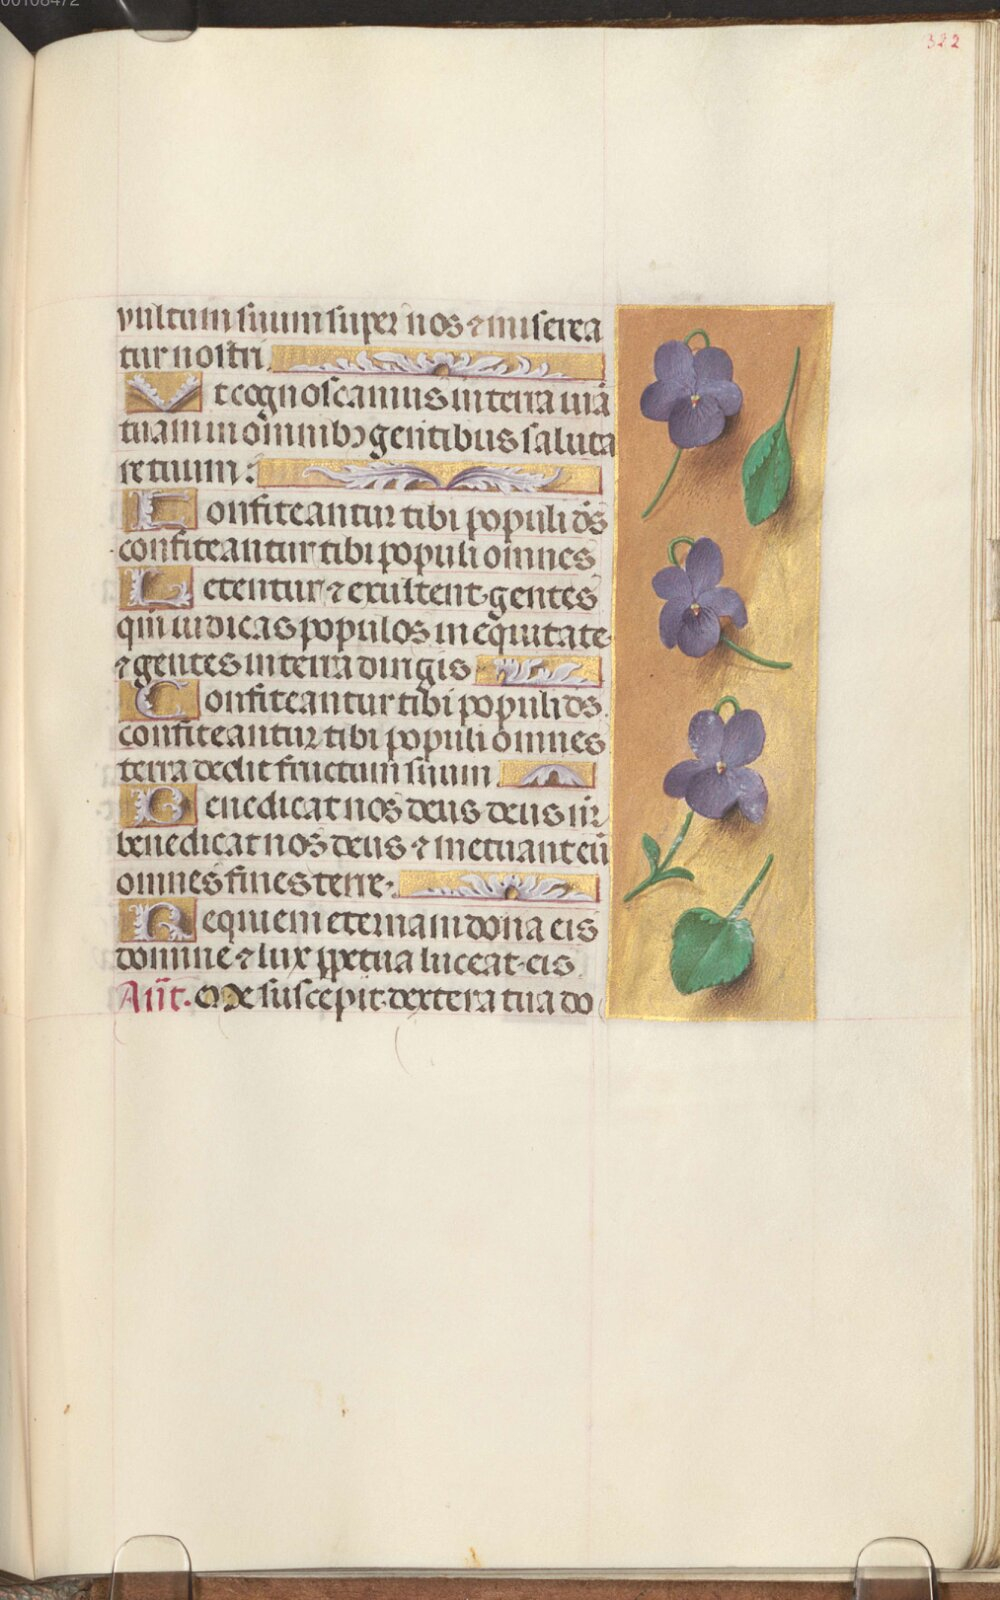 00108472
322
vultum suum super nos ⁊ miserea
tur nostri.
Vt cognoscamus in terra viā
tuam in omnibꝫ gentibus saluta
re tuum:
Confiteantur tibi populi ds̄
confiteantur tibi populi omnes
Letentur ⁊ exultent gentes
qm̄ iudicas populos in equitate
⁊ gentes in terra dirigis
Confiteantur tibi populi ds̄.
confiteantur tibi populi omnes
terra dedit fructum suum.
Benedicat nos deus deus nr̄
benedicat nos deus ⁊ metuant eū
omnes fines terre.
Requiem eternam dona eis
domine ⁊ lux ꝑpetua luceat eis.
Añt. Me suscepit dextera tua do